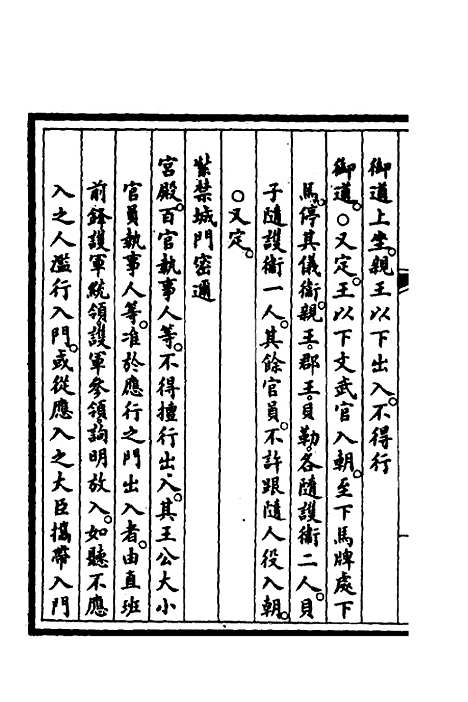 御道上坐。親王以下出入。不得行
御道。○又定。王以下文武官入朝。至下馬牌處下
馬。停其儀衛。親王。郡王。貝勒。各隨護衛二人。貝
子隨護衛一人。其餘官員。不許跟隨人役入朝。
○又定。
紫禁城門密邇
宮殿。百官執事人等。不得擅行出入。其王公大小
官員執事人等。准於應行之門出入者。由直班
前鋒護軍統領護軍參領。詢明放入。如聽不應
入之人濫行入門。或從應入之大臣攜帶入門